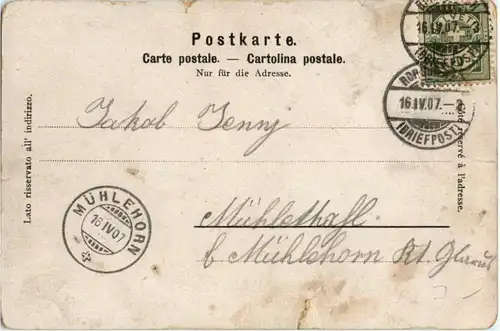 Postkarte.
Carte postale. — Cartolina postale.
Nur für die Adresse.
Lato riservato all' indirizzo.
Côté réservé à l'adresse.
HELVETIA
16.IV.07.-3
(BRIEFPOST)
16.IV.07.-3
(BRIEFPOST)
Jakob Jenny
MÜHLEHORN
16 IV 07
Mühlethal
b Mühlehorn Kt. Glarus
7-